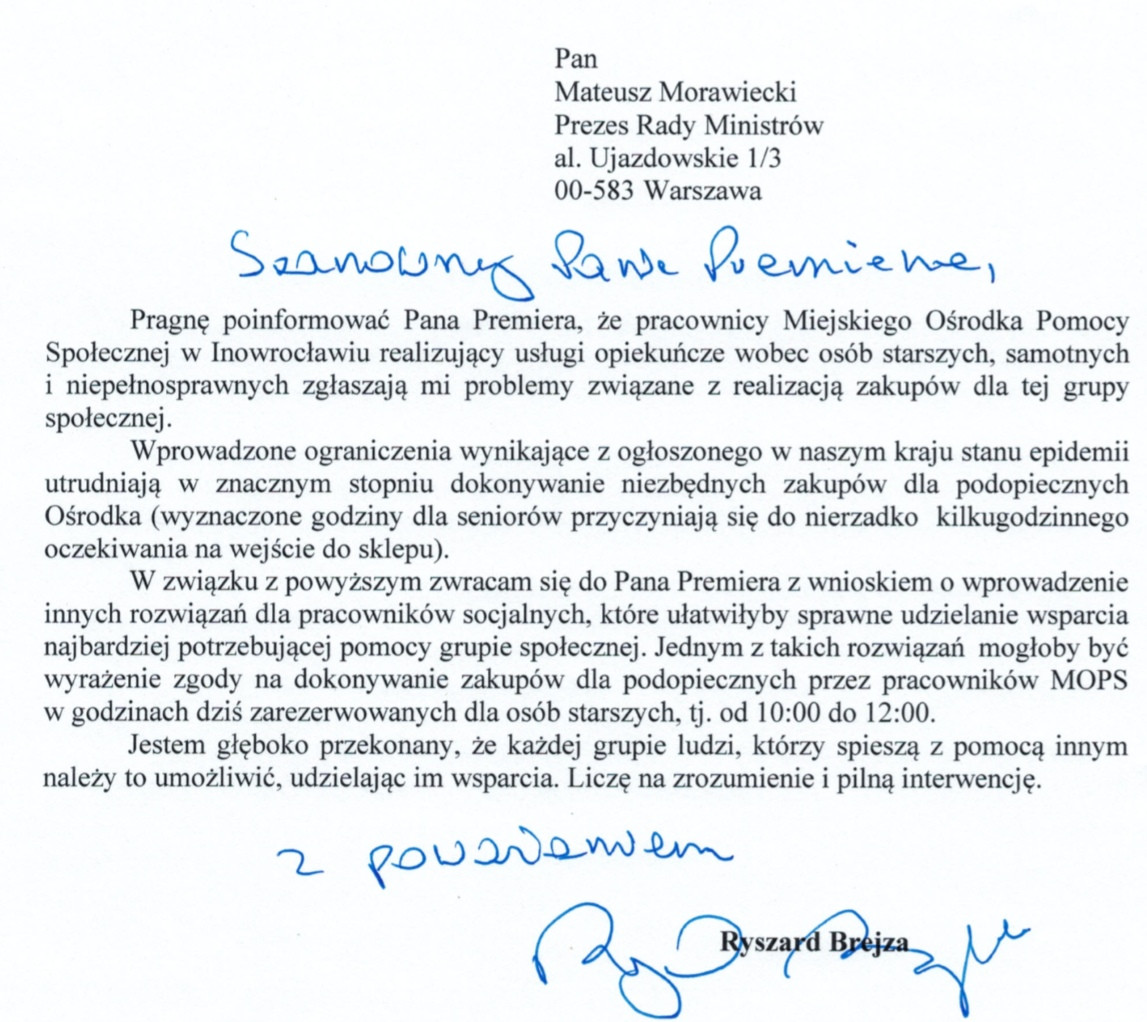 Pan
Mateusz Morawiecki
Prezes Rady Ministrów
al. Ujazdowskie 1/3
00-583 Warszawa
Szanowny Panie Premierze,
Pragnę poinformować Pana Premiera, że pracownicy Miejskiego Ośrodka Pomocy
Społecznej w Inowrocławiu realizujący usługi opiekuńcze wobec osób starszych, samotnych
i niepełnosprawnych zgłaszają mi problemy związane z realizacją zakupów dla tej grupy
społecznej.
Wprowadzone ograniczenia wynikające z ogłoszonego w naszym kraju stanu epidemii
utrudniają w znacznym stopniu dokonywanie niezbędnych zakupów dla podopiecznych
Ośrodka (wyznaczone godziny dla seniorów przyczyniają się do nierzadko kilkugodzinnego
oczekiwania na wejście do sklepu).
W związku z powyższym zwracam się do Pana Premiera z wnioskiem o wprowadzenie
innych rozwiązań dla pracowników socjalnych, które ułatwiłyby sprawne udzielanie wsparcia
najbardziej potrzebującej pomocy grupie społecznej. Jednym z takich rozwiązań mogłoby być
wyrażenie zgody na dokonywanie zakupów dla podopiecznych przez pracowników MOPS
w godzinach dziś zarezerwowanych dla osób starszych, tj. od 10:00 do 12:00.
Jestem głęboko przekonany, że każdej grupie ludzi, którzy spieszą z pomocą innym
należy to umożliwić, udzielając im wsparcia. Liczę na zrozumienie i pilną interwencję.
z poważaniem
Ryszard Brejza